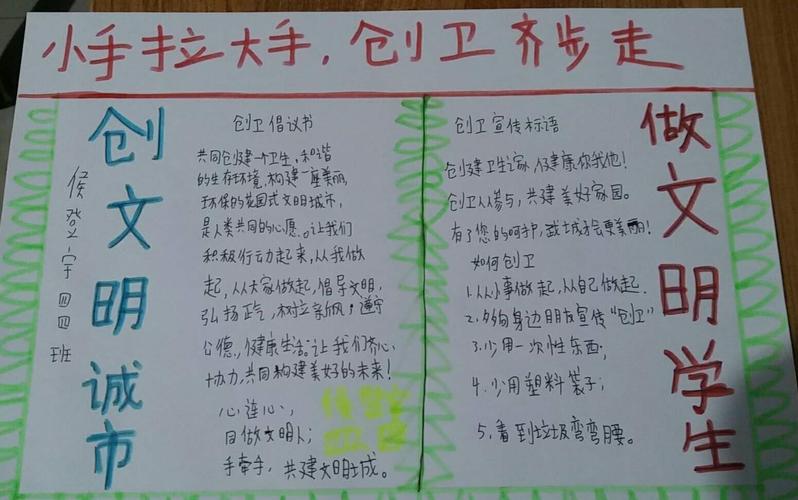 小手拉大手，创卫齐步走
创文明诚市
侯登宇四四班
创卫倡议书
共同创建一个卫生，和谐
的生存环境，构建一座美丽，
环保的花园式文明城市，
是人类共同的心愿。让我们
积极行动起来，从我做
起，从大家做起，倡导文明，
弘扬正气，树立新风，遵守
公德，健康生活。让我们齐心、
协力，共同构建美好的未来！
心连心，
同做文明人；
手牵手，共建文明城。
创卫宣传标语
创建卫生家，健康你我他！
创卫人人参与，共建美好家园。
有了您的呵护，武城才会更美丽！
如何创卫
1.从小事做起，从自己做起.
2.多向身边朋友宣传“创卫”
3.少用一次性东西；
4.少用塑料袋子；
5.看到垃圾弯弯腰。
做文明学生